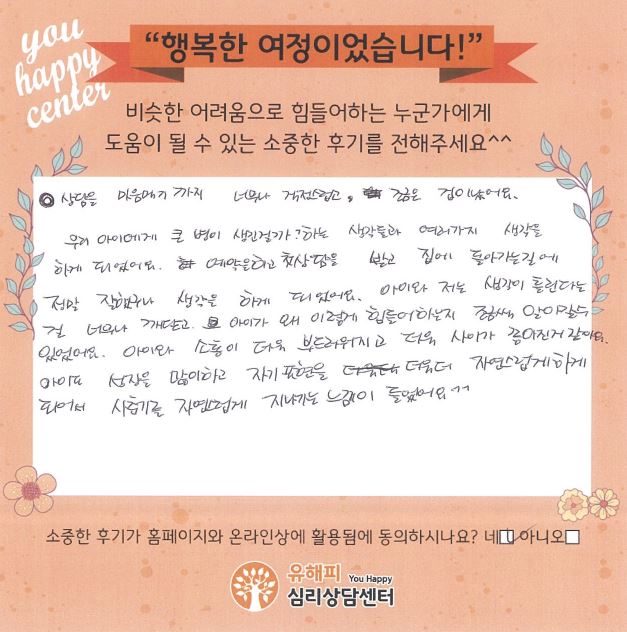 you
happy
center
“행복한 여정이었습니다!”
비슷한 어려움으로 힘들어하는 누군가에게
도움이 될 수 있는 소중한 후기를 전해주세요^^
상담을 마음먹기 까지 너무나 걱정스럽고, 조금은 겁이났어요.
우리 아이에게 큰 병이 생긴걸까? 하는 생각들과 여러가지 생각을
하게 되었어요. 예약을하고 첫상담을 받고 집에 돌아가는길에
정말 잘했구나 생각을 하게 되었어요. 아이와 저는 생각이 틀린다는
걸 너무나 깨닫고. 아이가 왜 이렇게 힘들어하는지 조금씩 알아갈수
있었어요. 아이와 소통이 더욱 부드러워지고 더욱 사이가 좋아진거 같아요.
아이도 성장을 많이하고 자기 표현을 더욱더 자연스럽게하게
되어서 사춘기를 자연스럽게 지나가는 느낌이 들었어요^^
소중한 후기가 홈페이지와 온라인상에 활용됨에 동의하시나요? 네 아니오
유해피 You Happy
심리상담센터